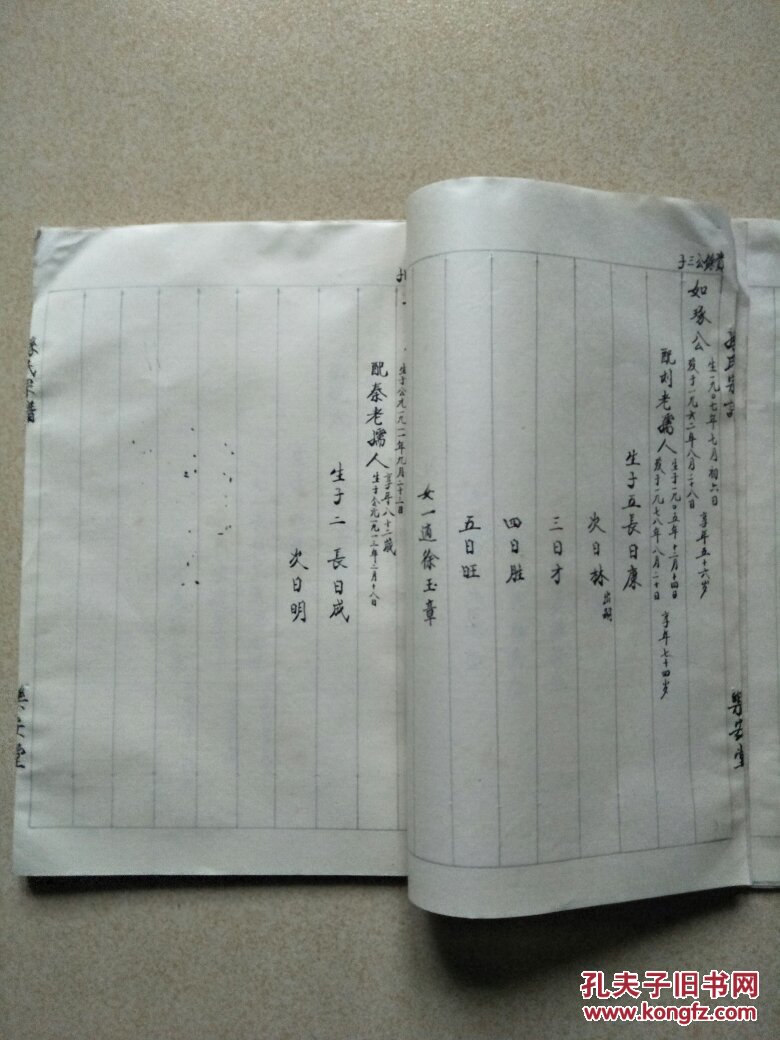 公三子
如琢公
生一九〇七年七月初六日
歿于一九六二年八月二十八日
享年五十六岁
配刘老孺人
生于一九〇五年十二月十四日
歿于一九七八年八月二十日
享年七十四岁
生子五長日康
次日林出嗣
三日才
四日胜
五日旺
女一適徐玉章
樂安堂
生于公元一九一一年九月二十三日
享年八十二歲
配秦老孺人
生于公元一九一三年二月十八日
生子二 長日成
次日明
氏宗譜
安堂
孔夫子旧书网
www.kongfz.com